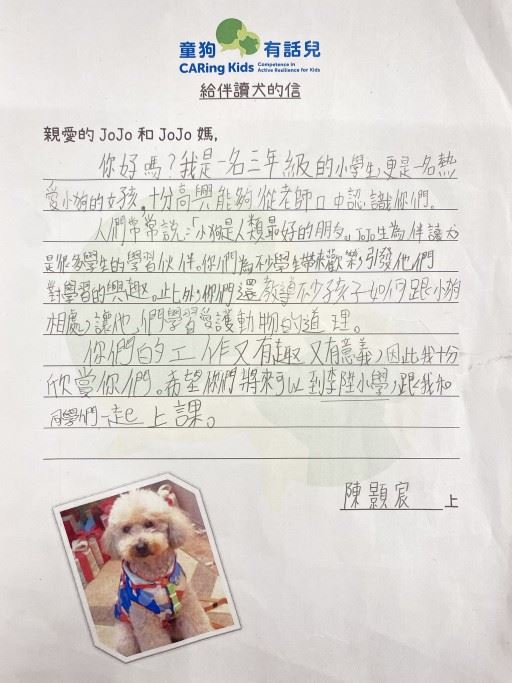 童狗有話兒
CARing Kids Competence in
Active Resilience for Kids
給伴讀犬的信
親愛的 JoJo 和 JoJo 媽,
你好嗎？我是一名三年級的小學生更是一名熱
愛小狗的女孩。十份高興能夠從老師口中認識你們。
人們常常說：「小狗是人類最好的朋友。」JoJo生為伴讀犬
是很多學生的學習伙伴。你們為不少學生帶來歡樂，引發他們
對學習的興趣。此外，你們還教導不少孩子如何跟小狗
相處，讓他們學習愛護動物的道理。
你們的工作又有趣又有意義，因此我十分
欣當你們。希望你們將來可以到李陞小學，跟我和
同學們一起上課。
陳顥宸 上